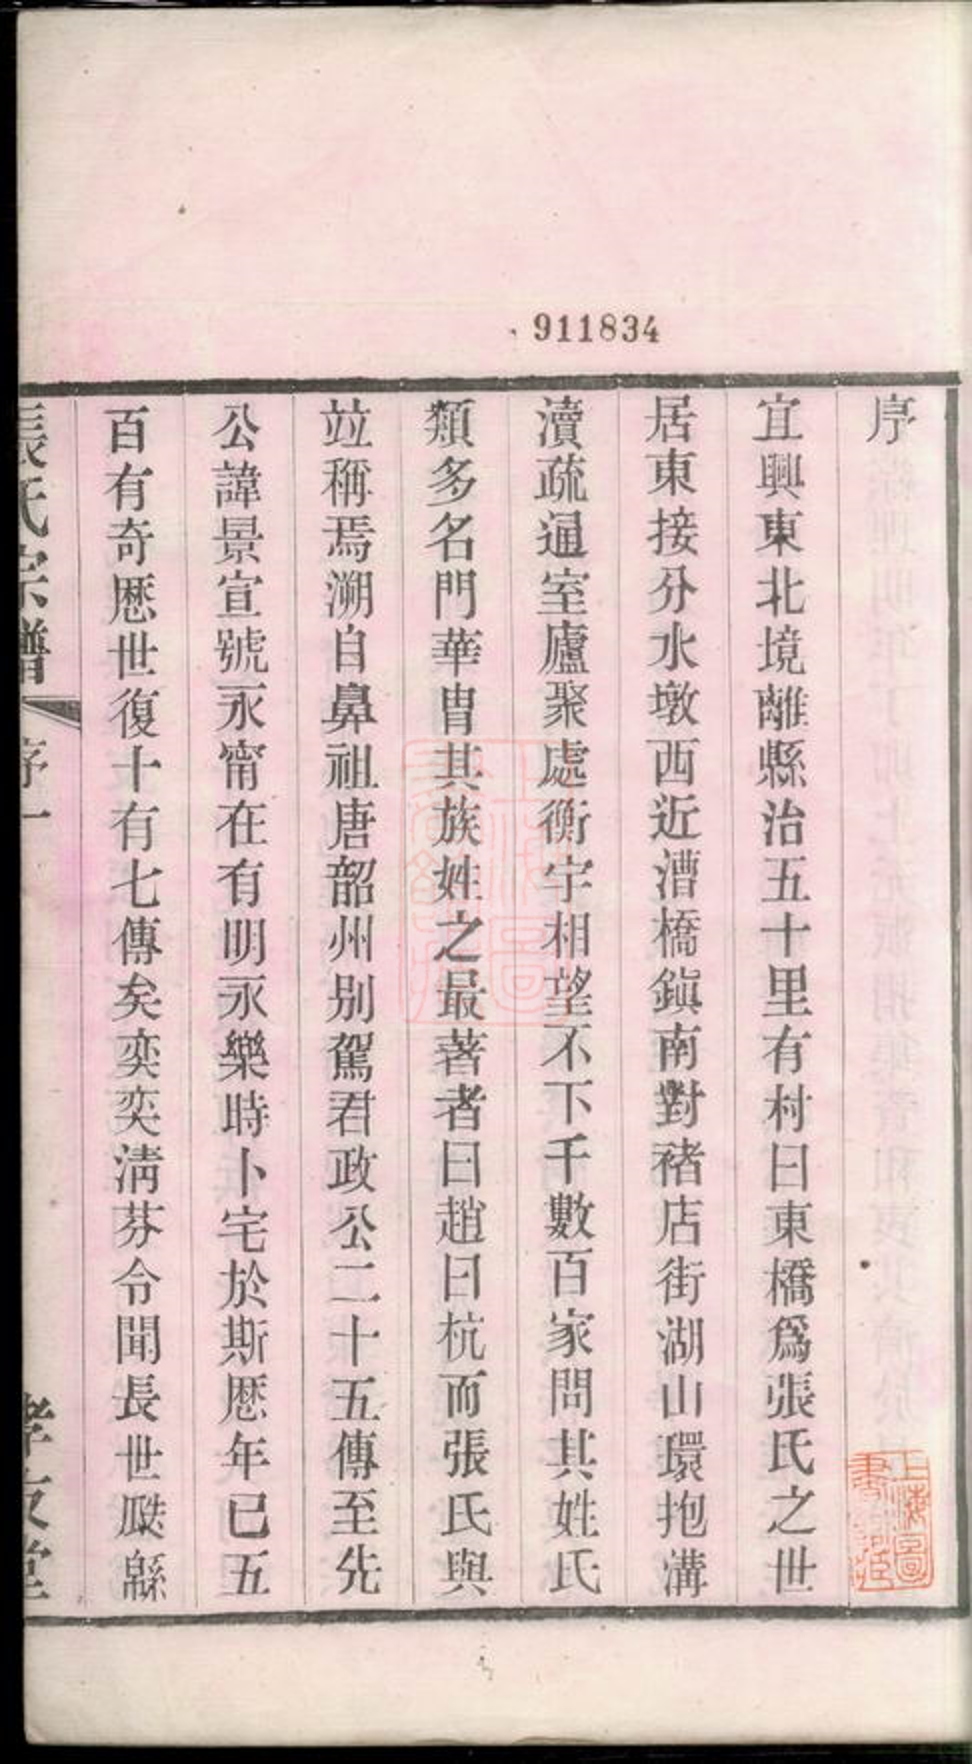 911834
序
宜興東北境離縣治五十里有村曰東橋爲張氏之世
居東接分水墩西近漕橋鎮南對褚店街湖山環抱溝
瀆疏通室廬聚處衡宇相望不下千數百家問其姓氏
類多名門華胄其族姓之最著者曰趙曰杭而張氏與
竝稱焉溯自鼻祖唐韶州别駕君政公二十五傳至先
公諱景宣號永甯在有明永樂時卜宅於斯歷年已五
百有奇歷世復十有七傳矣奕奕淸芬令聞長世瓞緜
張氏宗譜 序一 孝友堂
上海圖書館